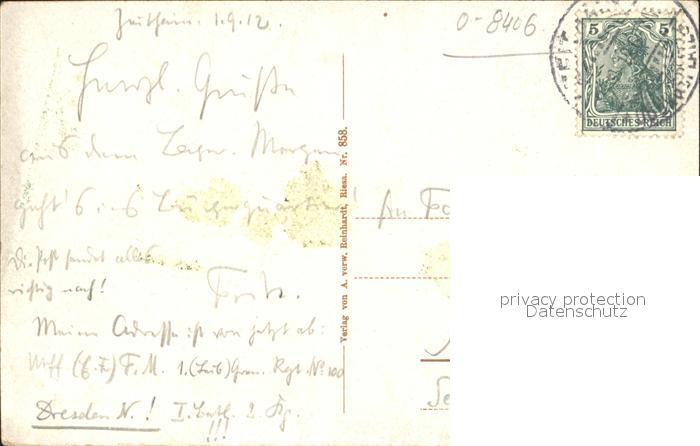 Zeithain. 1.9.12.
0-8406
Herzl. Grüße
aus dem Lager. Morgen
geht's ins
An
Die Post sendet alles
richtig nach!
Fritz.
Meine Adresse ist von jetzt ab:
Uff (E.F.) F.M. 1.(Leib) Gren. Regt. No 100
Dresden N.! I. Batl. 2. Kp.
!!!
Verlag von A. verw. Reinhardt, Riesa. Nr. 858.
5 5
DEUTSCHES REICH
privacy protection
Datenschutz